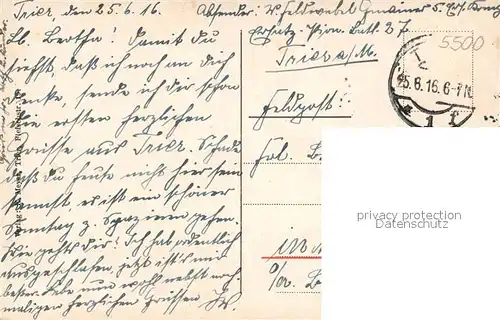 Trier, den 25.6.16.
Lb. Bertha! Damit du
siehst, daß ich noch an dich
denke, sende ich dir schon
die ersten herzlichen
Grüsse aus Trier. Schade
daß du heute nicht hier sein
kannst, es ist ein schöner
Sonntag z. Spazieren gehen.
Wie gehts dir? Ich hab ordentlich
ausgeschlafen, jetzt ist's mir
besser. Lebe nun wohl nebst noch=
maligen herzlichen Grüssen
Absender:
Ersatz. Pion. Batl. 27
Trier a/M.
Feldpost!
5500
25.6.16.6-7N.
* 1 f
privacy protection
Datenschutz